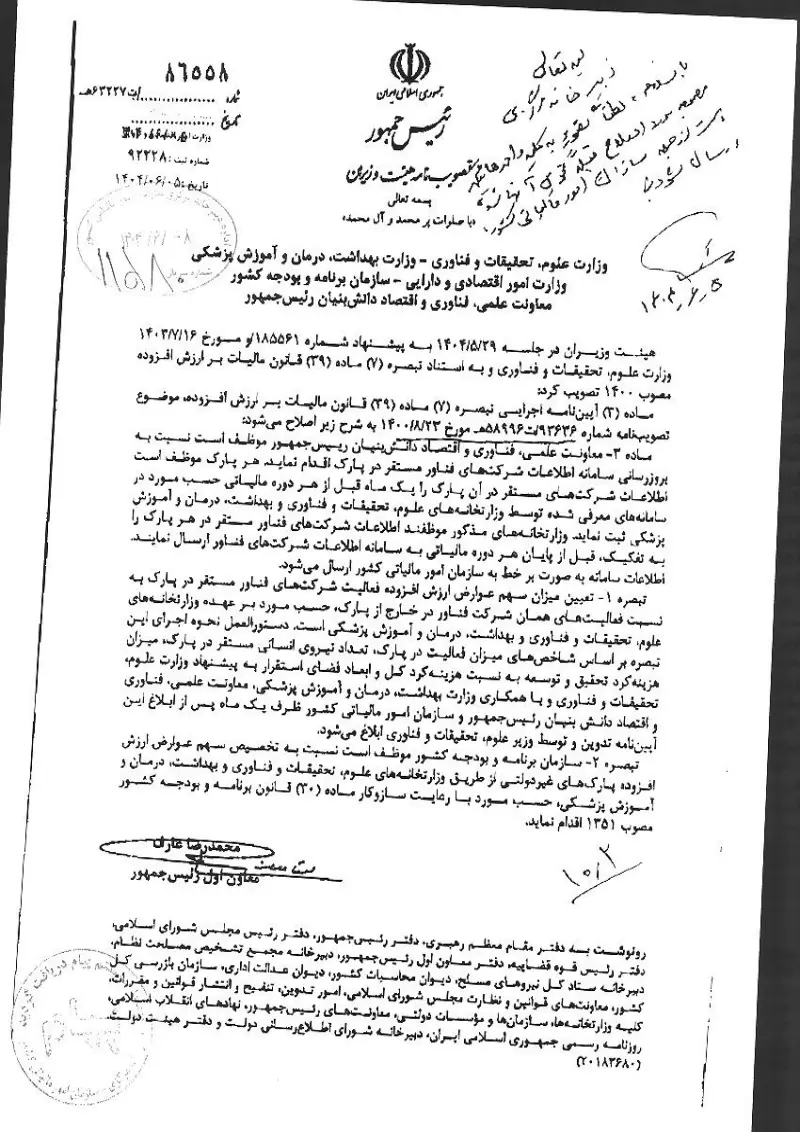 ۸۶۵۵۸
شماره
/ت۶۳۲۲۷هـ
تاریخ
شماره ثبت: ۹۲۲۲۸
تاریخ: ۱۴۰۴/۰۶/۰۵
جمهوری اسلامی ایران
رئیس جمهور
تصویب‌نامه هیئت وزیران
بسمه تعالی
«با صلوات بر محمد و آل محمد»
وزارت علوم، تحقیقات و فناوری - وزارت بهداشت، درمان و آموزش پزشکی
وزارت امور اقتصادی و دارایی - سازمان برنامه و بودجه کشور
معاونت علمی، فناوری و اقتصاد دانش‌بنیان رئیس‌جمهور
هیئت وزیران در جلسه ۱۴۰۴/۵/۲۹ به پیشنهاد شماره ۱۸۵۵۶۱/و مورخ ۱۴۰۳/۷/۱۶
وزارت علوم، تحقیقات و فناوری و به استناد تبصره (۷) ماده (۳۹) قانون مالیات بر ارزش افزوده
مصوب ۱۴۰۰ تصویب کرد:
ماده (۳) آیین‌نامه اجرایی تبصره (۷) ماده (۳۹) قانون مالیات بر ارزش افزوده، موضوع
تصویب‌نامه شماره ۹۳۶۳۶/ت۵۸۹۹۶هـ مورخ ۱۴۰۰/۸/۲۳ به شرح زیر اصلاح می‌شود:
ماده ۳- معاونت علمی، فناوری و اقتصاد دانش‌بنیان رییس‌جمهور موظف است نسبت به
بروزرسانی سامانه اطلاعات شرکت‌های فناور مستقر در پارک اقدام نماید. هر پارک موظف است
اطلاعات شرکت‌های مستقر در آن پارک را یک ماه قبل از هر دوره مالیاتی حسب مورد در
سامانه‌های معرفی شده توسط وزارتخانه‌های علوم، تحقیقات و فناوری و بهداشت، درمان و آموزش
پزشکی ثبت نماید. وزارتخانه‌های مذکور موظفند اطلاعات شرکت‌های فناور مستقر در هر پارک را
به تفکیک، قبل از پایان هر دوره مالیاتی به سامانه اطلاعات شرکت‌های فناور ارسال نمایند.
اطلاعات سامانه به صورت بر خط به سازمان امور مالیاتی کشور ارسال می‌شود.
تبصره ۱- تعیین میزان سهم عوارض ارزش افزوده فعالیت شرکت‌های فناور مستقر در پارک به
نسبت فعالیت‌های همان شرکت فناور در خارج از پارک، حسب مورد بر عهده وزارتخانه‌های
علوم، تحقیقات و فناوری و بهداشت، درمان و آموزش پزشکی است. دستورالعمل نحوه اجرای این
تبصره بر اساس شاخص‌های میزان فعالیت در پارک، تعداد نیروی انسانی مستقر در پارک، میزان
هزینه‌کرد تحقیق و توسعه به نسبت هزینه‌کرد کل و ابعاد فضای استقرار به پیشنهاد وزارت علوم،
تحقیقات و فناوری و با همکاری وزارت بهداشت، درمان و آموزش پزشکی، معاونت علمی، فناوری
و اقتصاد دانش بنیان رئیس‌جمهور و سازمان امور مالیاتی کشور ظرف یک ماه پس از ابلاغ این
آیین‌نامه تدوین و توسط وزیر علوم، تحقیقات و فناوری ابلاغ می‌شود.
تبصره ۲- سازمان برنامه و بودجه کشور موظف است نسبت به تخصیص سهم عوارض ارزش
افزوده پارک‌های غیردولتی از طریق وزارتخانه‌های علوم، تحقیقات و فناوری و بهداشت، درمان و
آموزش پزشکی، حسب مورد با رعایت سازوکار ماده (۳۰) قانون برنامه و بودجه کشور
مصوب ۱۳۵۱ اقدام نماید.
محمدرضا عارف
معاون اول رئیس‌جمهور
رونوشت به دفتر مقام معظم رهبری، دفتر رئیس‌جمهور، دفتر رئیس مجلس شورای اسلامی،
دفتر رئیس قوه قضاییه، دفتر معاون اول رئیس‌جمهور، دبیرخانه مجمع تشخیص مصلحت نظام،
دبیرخانه ستاد کل نیروهای مسلح، دیوان محاسبات کشور، دیوان عدالت اداری، سازمان بازرسی کل
کشور، معاونت‌های قوانین و نظارت مجلس شورای اسلامی، امور تدوین، تنقیح و انتشار قوانین و مقررات،
کلیه وزارتخانه‌ها، سازمان‌ها و مؤسسات دولتی، معاونت‌های رئیس‌جمهور، نهادهای انقلاب اسلامی،
روزنامه رسمی جمهوری اسلامی ایران، دبیرخانه شورای اطلاع‌رسانی دولت و دفتر هیئت دولت.
(۲۰۱۸۳۶۸۰)